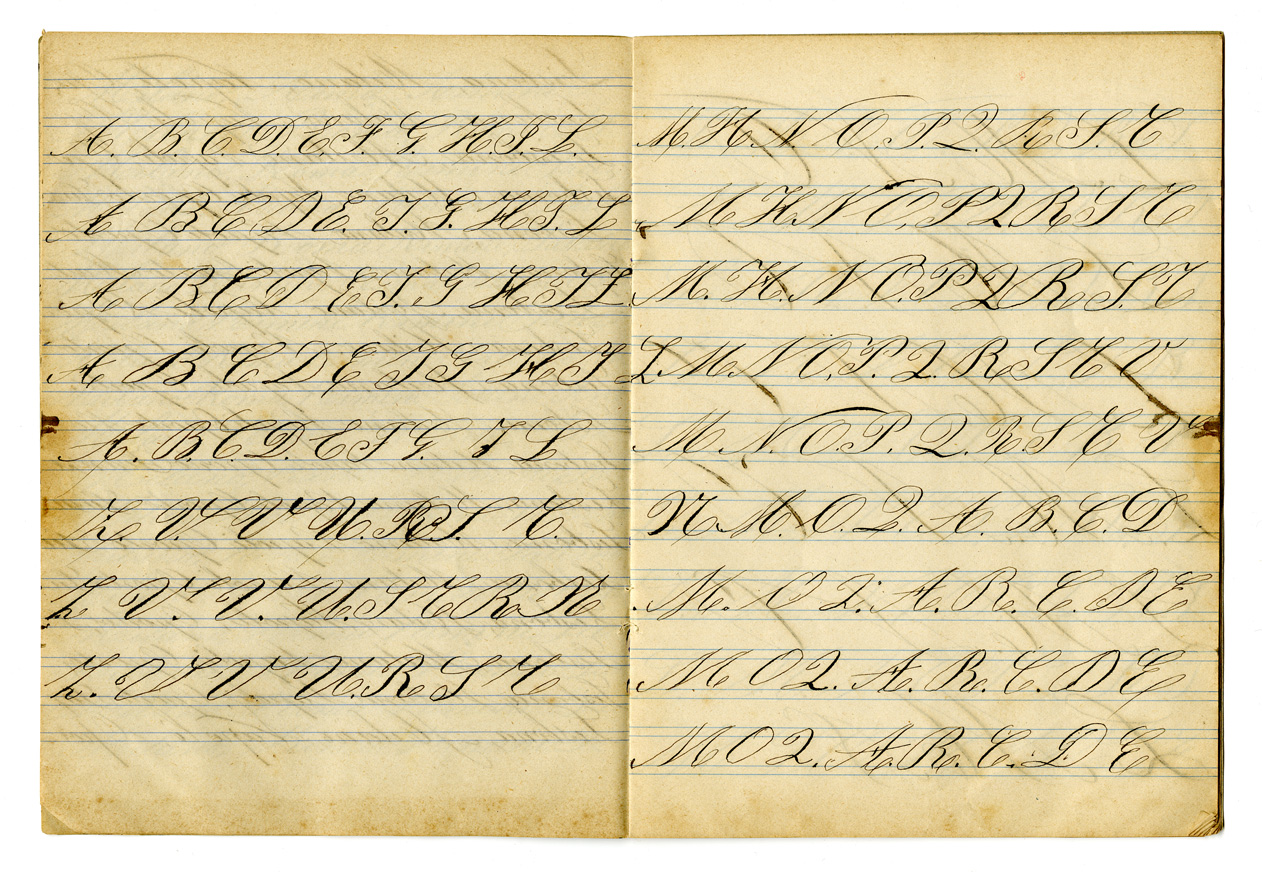 A. B. C. D. E. F. G. H. I. L.
A B C D E. F. G. H I. L
A B C D E F. G H I L
A B C D E F G H I
A. B. C. D. E F G. I L
Z. V. V U. R. S. T.
Z V. V. U. S T R N
Z. V V U. R S T
M. H. N. O. P. Q. R S. T
M H. N O. P Q R S T
M. H. N O. P Q R S. T
L. M. N O. P. Q. R S T V
M. N. O P. Q. R. S T V
N. M. O. Q. A. B. C. D
M. O Q. A. R. C. D E
M O Q. A. R. C. D E
M O Q. A. R. C. D E